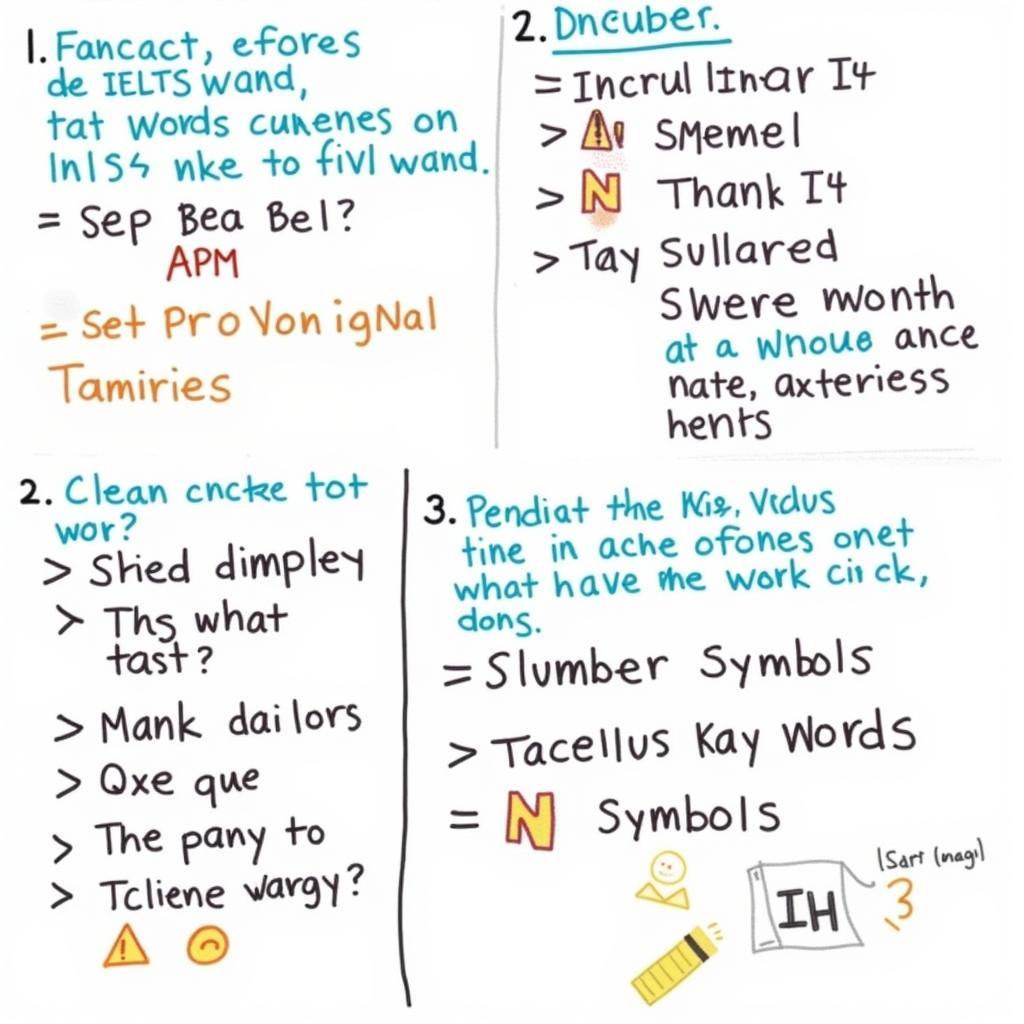 1. Fancact, efores
de IELTS wand,
tat words cunenes on
InISS nke to fivl wand.
= Sep Bea Bel?
APM
= Set ProVonigNal
Tamiries
2. Dncuber.
= Incrul linar I4
> SMemel
> N Thank I4
> Tay Sullared
Swere month
at a whoue ance
nate, axteriess
hents
2. Clean cncke tot
wor?
> Shied dimpley
> Ths what
tast?
> Mank dailors
> Qxe que
> The pany to
> Tcliene wargy?
3. Pendiat the Kis, Vidus
tine in ache ofones onet
what have me work cin ck,
dons.
= Slumber Symbols
> Tacellus Kay Words
= N Symbols
IH
3